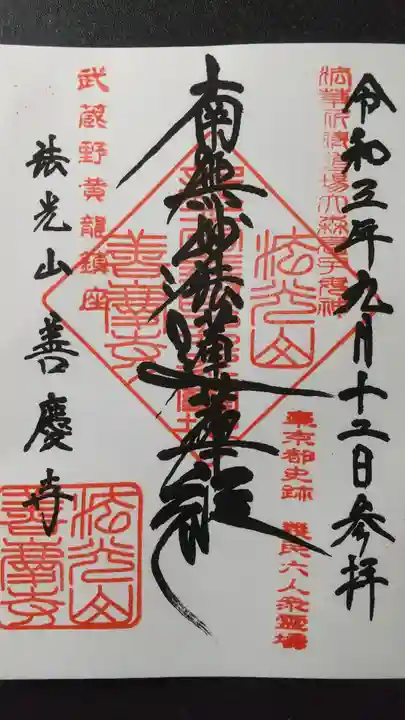 令和三年九月十二日参拝
東京都史跡 義民六人衆霊場
南無妙法蓮華経
法光山
善慶寺
武蔵野黄龍鎮座
法光山善慶寺
法光山
善慶寺